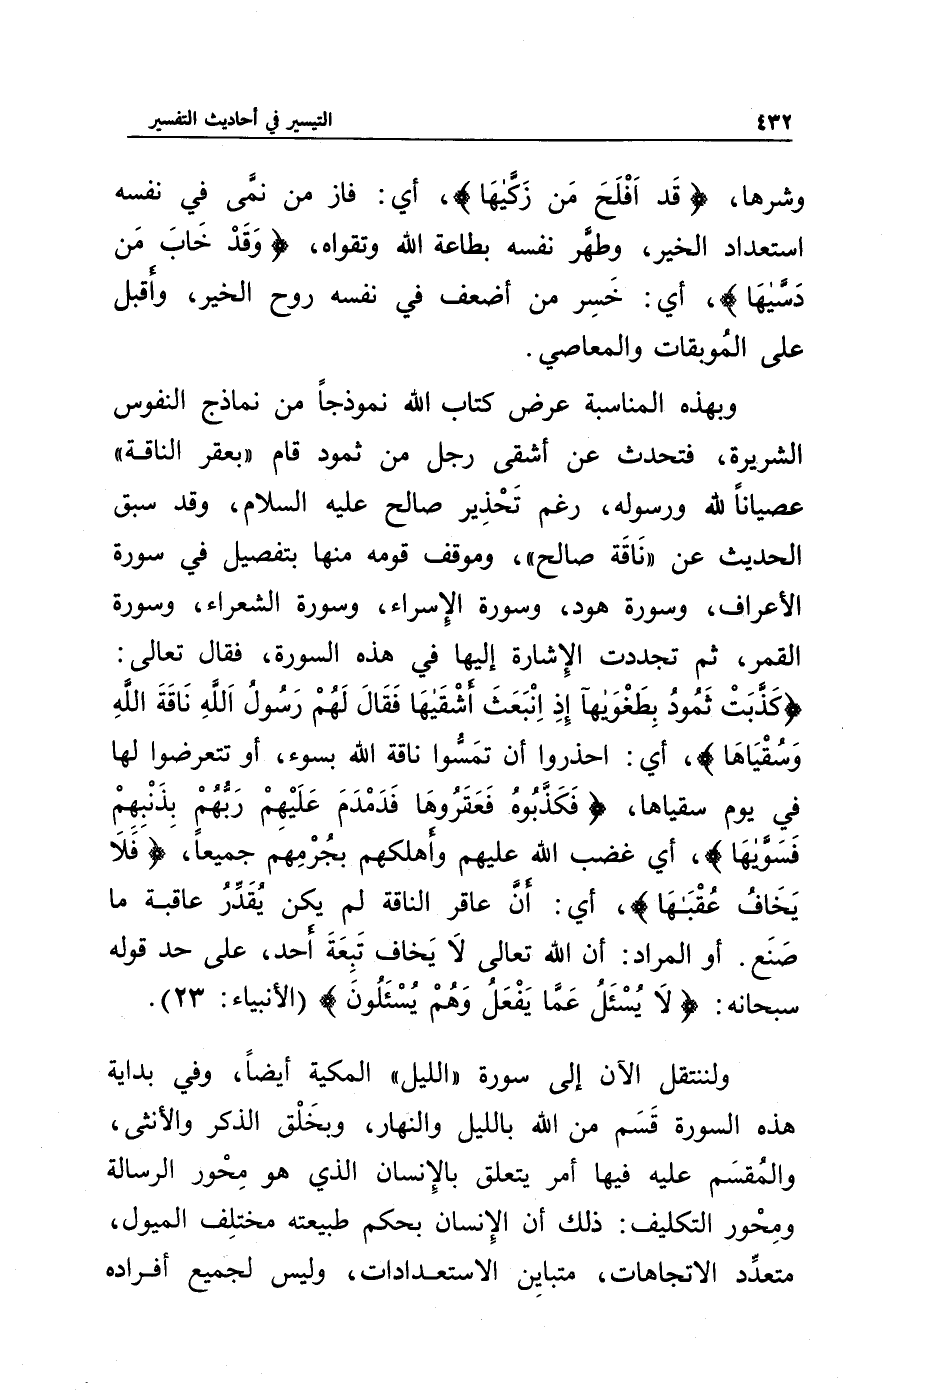 ٤٣٢ التيسير في أحاديث التفسير
وشرها، ﴿ قَد اَفْلَحَ مَن زَكَّيٰهَا ﴾، أي: فاز من نمَّى في نفسه
استعداد الخير، وطهَّر نفسه بطاعة الله وتقواه، ﴿ وَقَدْ خَابَ مَن
دَسَّيٰهَا ﴾، أي: خَسِر من أضعف في نفسه روح الخير، وأَقبل
على المُوبقات والمعاصي.
وبهذه المناسبة عرض كتاب الله نموذجاً من نماذج النفوس
الشريرة، فتحدث عن أشقى رجل من ثمود قام «بعقر الناقة»
عصياناً لله ورسوله، رغم تَحْذِير صالح عليه السلام، وقد سبق
الحديث عن «نَاقَة صالح»، وموقف قومه منها بتفصيل في سورة
الأعراف، وسورة هود، وسورة الإسراء، وسورة الشعراء، وسورة
القمر، ثم تجددت الإشارة إليها في هذه السورة، فقال تعالى:
﴿كَذَّبَتْ ثَمُودُ بِطَغْوَيٰهآ إِذِ اِنْبَعَثَ أَشْقَيٰهَا فَقَالَ لَهُمْ رَسُولُ اَللَّهِ نَاقَةَ اَللَّهِ
وَسُقْيَاهَا ﴾، أي: احذروا أن تمَسُّوا ناقة الله بسوء، أو تتعرضوا لها
في يوم سقياها، ﴿ فَكَذَّبُوهُ فَعَقَرُوهَا فَدَمْدَمَ عَلَيْهِمْ رَبُّهُمْ بِذَنْبِهِمْ
فَسَوَّيٰهَا ﴾، أي غضب الله عليهم وأَهلكهم بجُرْمِهم جميعاً، ﴿ فَلَا
يَخَافُ عُقْبَٰهَا ﴾، أي: أَنَّ عاقر الناقة لم يكن يُقَدِّرُ عاقبة ما
صَنَع. أو المراد: أن الله تعالى لَا يَخاف تَبِعَةَ أَحد، على حد قوله
سبحانه: ﴿ لَا يُسْئَلُ عَمَّا يَفْعَلُ وَهُمْ يُسْئَلُونَ ﴾ (الأنبياء: ٢٣).
ولننتقل الآن إلى سورة «الليل» المكية أيضاً، وفي بداية
هذه السورة قَسَم من الله بالليل والنهار، وبخَلْق الذكر والأنثى،
والمُقسَم عليه فيها أمر يتعلق بالإنسان الذي هو مِحْور الرسالة
ومِحْور التكليف: ذلك أن الإنسان بحكم طبيعته مختلِف الميول،
متعدِّد الاتجاهات، متبايِن الاستعدادات، وليس لجميع أفراده